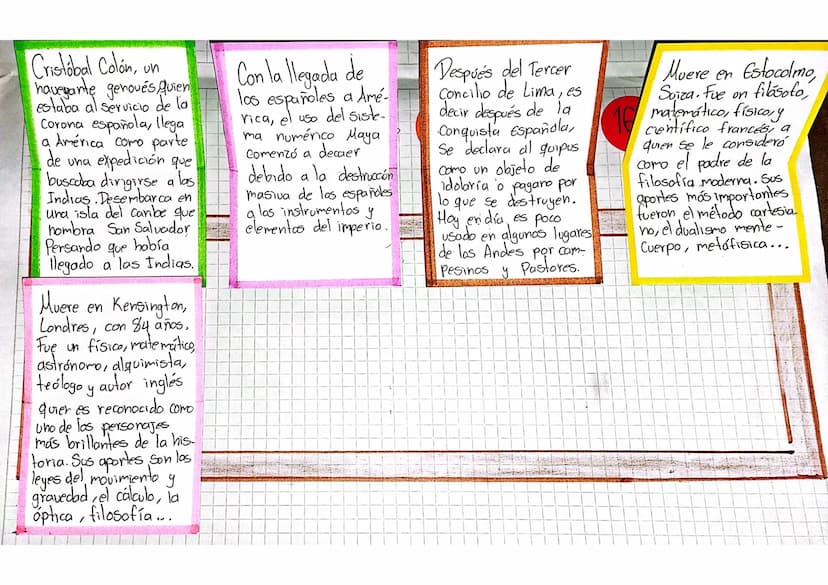 Cristóbal Colón, un
navegante genovés quien
estaba al servicio de la
Corona española, llega
a América como parte
de una expedición que
buscaba dirigirse a las
Indias. Desembarca en
una isla del caribe que
nombra San Salvador
Pensando que había
llegado a las Indias.
Con la llegada de
los españoles a Amé-
rica, el uso del siste-
ma numérico Maya
comenzó a decaer
debido a la destrucción
masiva de los españoles
a los instrumentos y
elementos del imperio.
Después del Tercer
Concilio de Lima, es
decir después de la
Conquista Española,
se declara al quipus
como un objeto de
idolatría o pagano por
lo que se destruyen.
Hoy en día, es poco
usado en algunos lugares
de los Andes por cam-
pesinos y Pastores.
16
Muere en Estocolmo,
Suiza. Fue un filósofo,
matemático, físico, y
científico francés, a
quien se le consideró
como el padre de la
filosofía moderna. Sus
aportes más importantes
fueron el método cartesia-
no, el dualismo mente-
Cuerpo, metafísica...
Muere en Kensington,
Londres, con 84 años.
Fue un físico, matemático,
astrónomo, alquimista,
teólogo y autor inglés
quien es reconocido como
uno de los personajes
más brillantes de la his-
toria. Sus aportes son las
leyes del movimiento y
gravedad, el cálculo, la
óptica, filosofía...